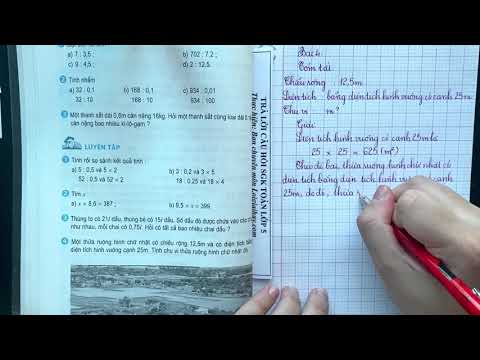 a) 7 : 3,5 ;
b) 702 : 7,2 ;
c) 9 : 4,5 ;
d) 2 : 12,5.
2 Tính nhẩm
a) 32 : 0,1
b) 168 : 0,1
c) 934 : 0,01
32 : 10
168 : 10
934 : 100
3 Một thanh sắt dài 0,8m cân nặng 16kg. Hỏi một thanh sắt cùng loại dài 0,
cân nặng bao nhiêu ki-lô-gam ?
LUYỆN TẬP
1 Tính rồi so sánh kết quả tính
a) 5 : 0,5 và 5 × 2
b) 3 : 0,2 và 3 × 5
52 : 0,5 và 52 × 2
18 : 0,25 và 18 × 4
2 Tìm x
a) x × 8,6 = 387 ;
b) 9,5 × x = 399.
3 Thùng to có 21l dầu, thùng bé có 15l dầu. Số dầu đó được chứa vào các
như nhau, mỗi chai có 0,75l. Hỏi có tất cả bao nhiêu chai dầu ?
4 Một thửa ruộng hình chữ nhật có chiều rộng 12,5m và có diện tích bằng
diện tích hình vuông cạnh 25m. Tính chu vi thửa ruộng hình chữ nhật đó.
TRẢ LỜI CÂU HỎI SGK TOÁN LỚP 5
Thực hiện: Ban chuyên môn Loigiaihay.com
Bài 4
Tóm tắt
Chiều rộng : 12,5m
Diện tích : bằng diện tích hình vuông có cạnh 25m
Chu vi : m?
Giải
Diện tích hình vuông có cạnh 25m là
25 x 25 = 625 (m²)
Theo đề bài, thửa ruộng hình chữ nhật có
diện tích bằng diện tích hình vuông cạnh
25m, do đó, thửa